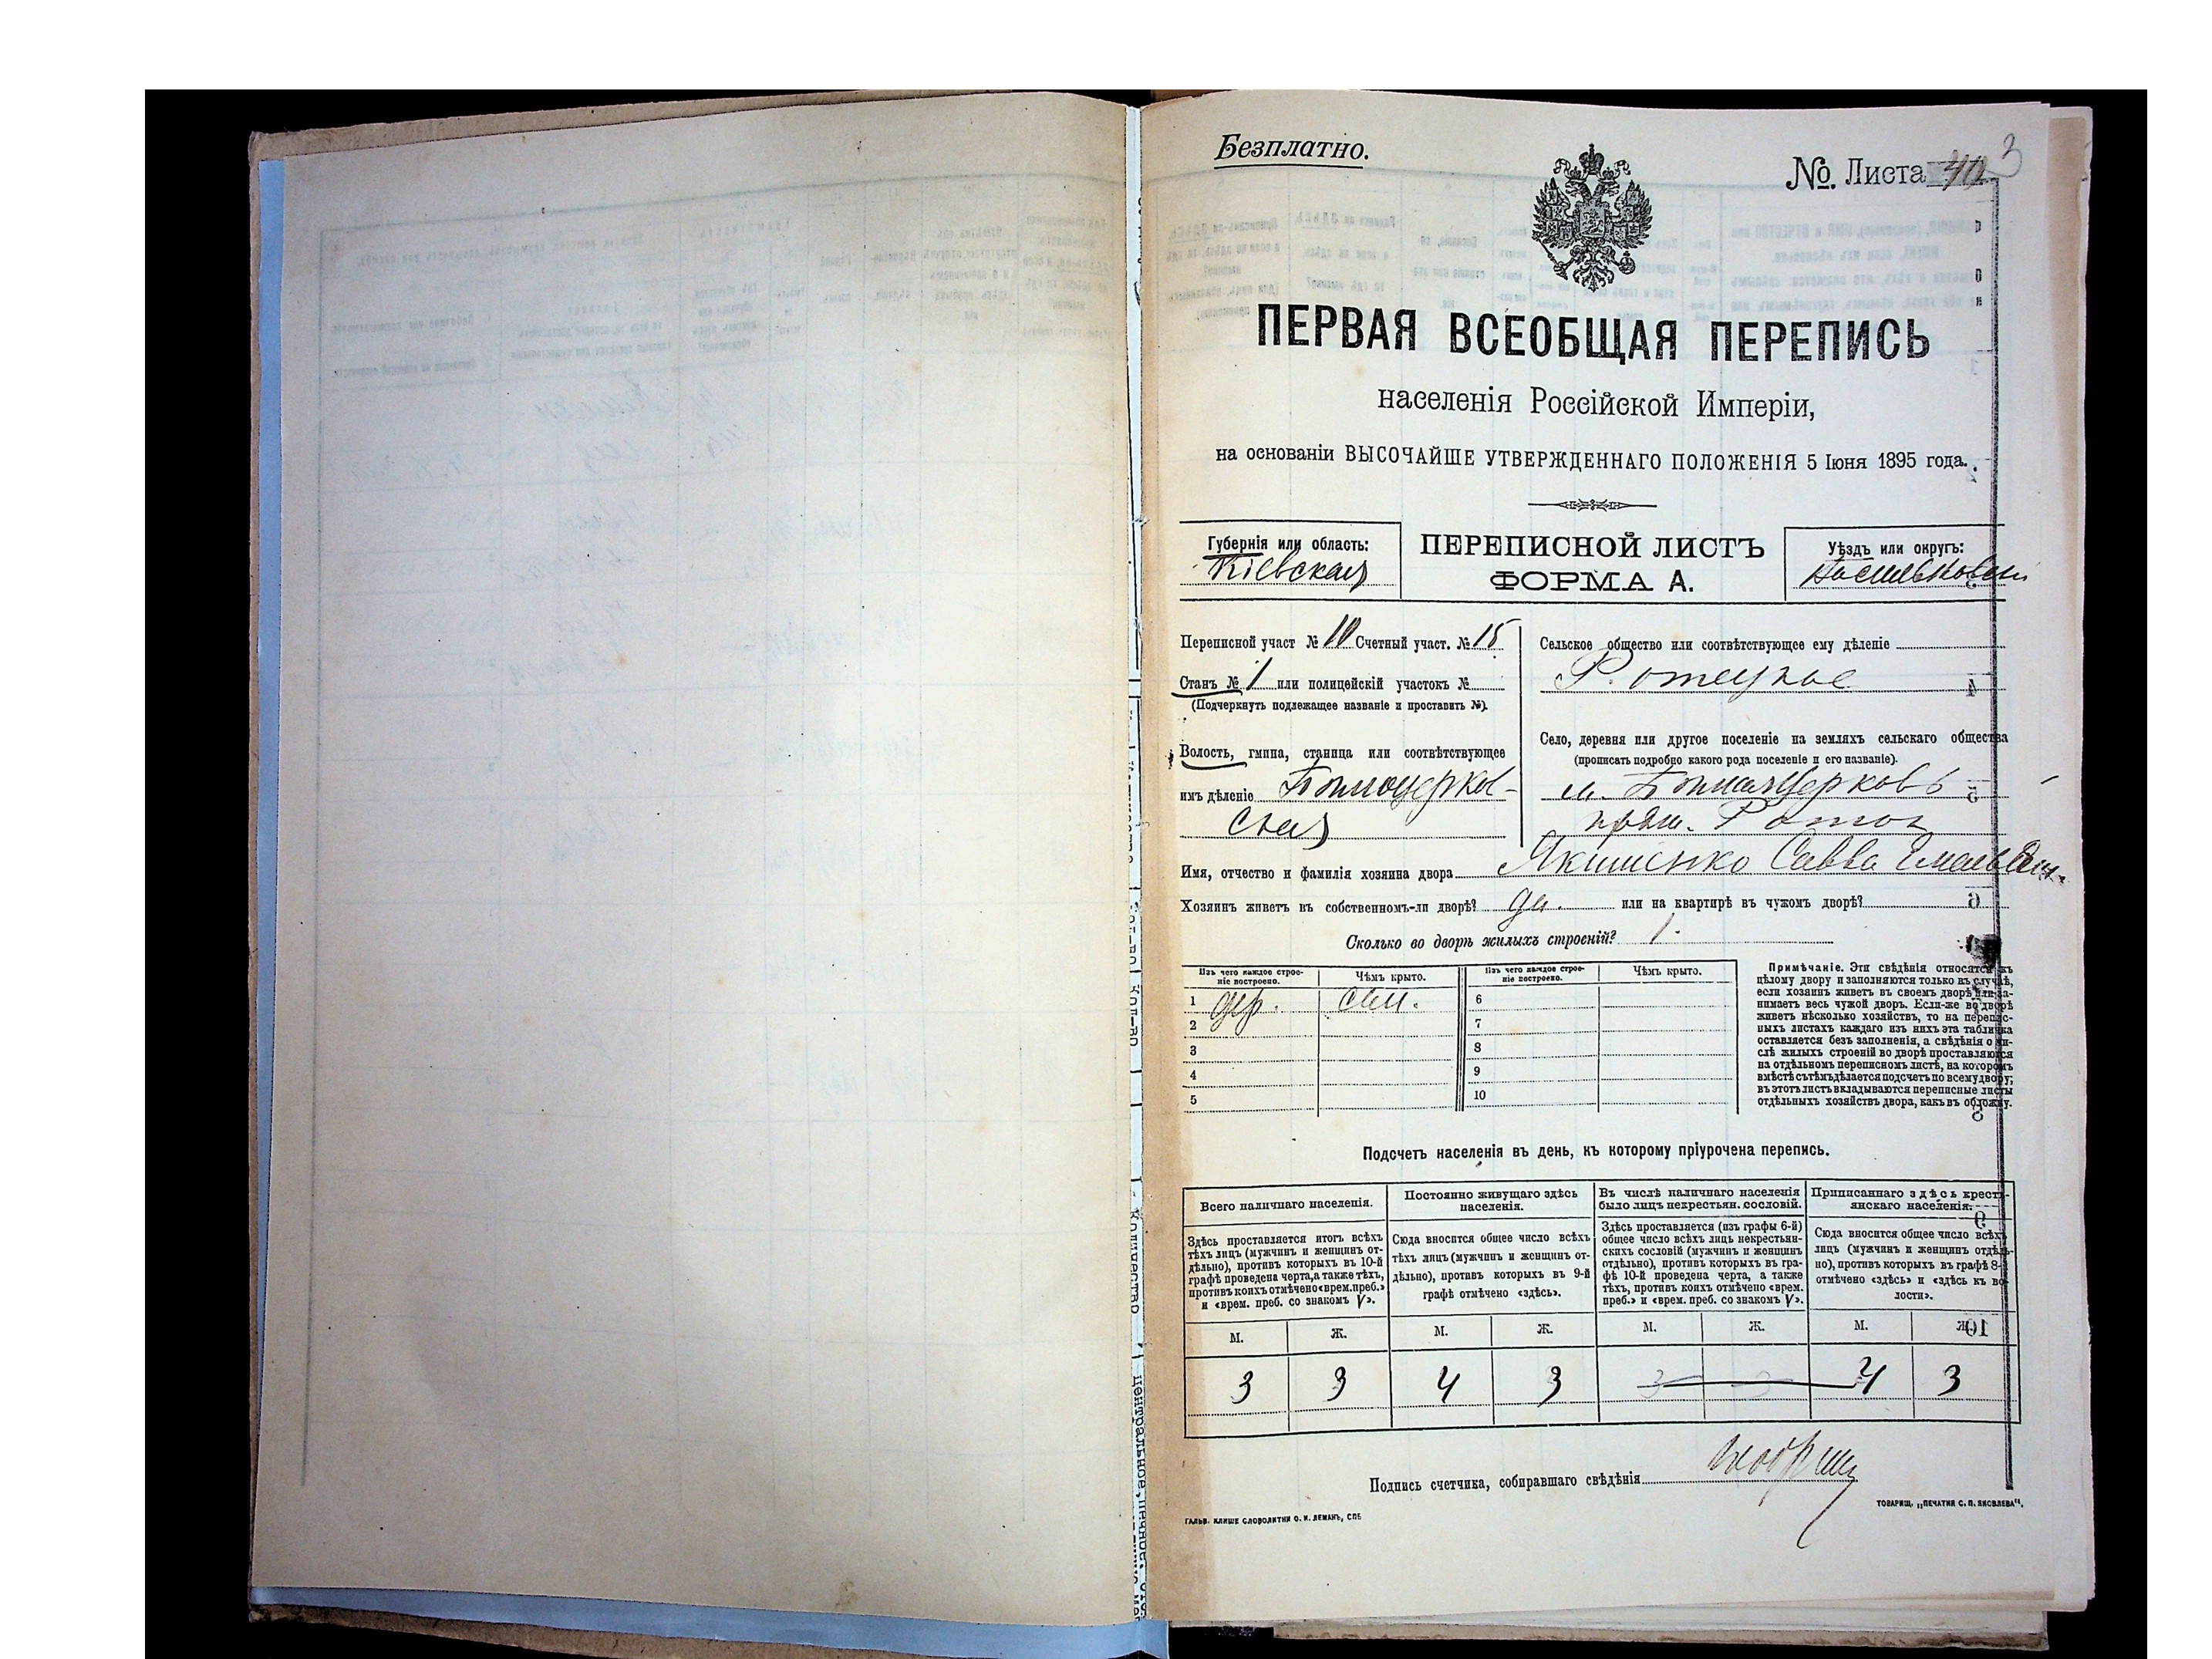 Безплатно.
3
№. Листа
ПЕРВАЯ ВСЕОБЩАЯ ПЕРЕПИСЬ
населенія Россійской Имперіи,
на основаніи ВЫСОЧАЙШЕ УТВЕРЖДЕННАГО ПОЛОЖЕНІЯ 5 Іюня 1895 года.
Губернія или область:
Кіевская
ПЕРЕПИСНОЙ ЛИСТЪ
ФОРМА А.
Уѣздъ или округъ:
Переписной участ № 10 Счетный участ. № 15
Станъ № 1 или полицейскій участокъ №
(Подчеркнуть подлежащее названіе и проставить №).
Волость, гмина, станица или соотвѣтствующее
имъ дѣленіе Бѣлоцерков-
ская
Сельское общество или соотвѣтствующее ему дѣленіе
Ротецкое
Село, деревня или другое поселеніе на земляхъ сельскаго общества
(прописать подробно какого рода поселеніе и его названіе).
м. Бѣлая Церковь
Роток
Имя, отчество и фамилія хозяина двора Якименко Савва
Хозяинъ живетъ въ собственномъ-ли дворѣ? да. или на квартирѣ въ чужомъ дворѣ?
Сколько во дворѣ жилыхъ строеній? 1.
Изъ чего каждое строе-
ніе построено.
Чѣмъ крыто.
Изъ чего каждое строе-
ніе построено.
Чѣмъ крыто.
1 дер. сол. 6
2 7
3 8
4 9
5 10
Примѣчаніе. Эти свѣдѣнія относятся къ
цѣлому двору и заполняются только въ случаѣ,
если хозяинъ живетъ въ своемъ дворѣ или за-
нимаетъ весь чужой дворъ. Если-же во дворѣ
живетъ нѣсколько хозяйствъ, то на перепис-
ныхъ листахъ каждаго изъ нихъ эта табличка
оставляется безъ заполненія, а свѣдѣнія о чи-
слѣ жилыхъ строеній во дворѣ проставляются
на отдѣльномъ переписномъ листѣ, на которомъ
вмѣстѣ съ тѣмъ дѣлается подсчетъ по всему двору;
въ этотъ листъ вкладываются переписные листы
отдѣльныхъ хозяйствъ двора, какъ въ обложку.
Подсчетъ населенія въ день, къ которому пріурочена перепись.
Всего наличнаго населенія.
Здѣсь проставляется итогъ всѣхъ
тѣхъ лицъ (мужчинъ и женщинъ от-
дѣльно), противъ которыхъ въ 10-й
графѣ проведена черта, а также тѣхъ,
противъ коихъ отмѣчено «врем. преб.»
и «врем. преб. со знакомъ V».
Постоянно живущаго здѣсь
населенія.
Сюда вносится общее число всѣхъ
тѣхъ лицъ (мужчинъ и женщинъ от-
дѣльно), противъ которыхъ въ 9-й
графѣ отмѣчено «здѣсь».
Въ числѣ наличнаго населенія
было лицъ некрестьян. сословій.
Здѣсь проставляется (изъ графы 6-й)
общее число всѣхъ лицъ некрестьян-
скихъ сословій (мужчинъ и женщинъ
отдѣльно), противъ которыхъ въ гра-
фѣ 10-й проведена черта, а также
тѣхъ, противъ коихъ отмѣчено «врем.
преб.» и «врем. преб. со знакомъ V».
Приписаннаго здѣсь кресть-
янскаго населенія.
Сюда вносится общее число всѣхъ
лицъ (мужчинъ и женщинъ отдѣль-
но), противъ которыхъ въ графѣ 8-й
отмѣчено «здѣсь» и «здѣсь къ во-
лости».
М. Ж. М. Ж. М. Ж. М. Ж.
3 3 4 3 3 3 4 3
Подпись счетчика, собиравшаго свѣдѣнія
ГАЛЬВ. КЛИШЕ СЛОВОЛИТНИ О. И. ЛЕМАНЪ, СПБ
ТОВАРИЩ. „ПЕЧАТНЯ С. П. ЯКОВЛЕВА".